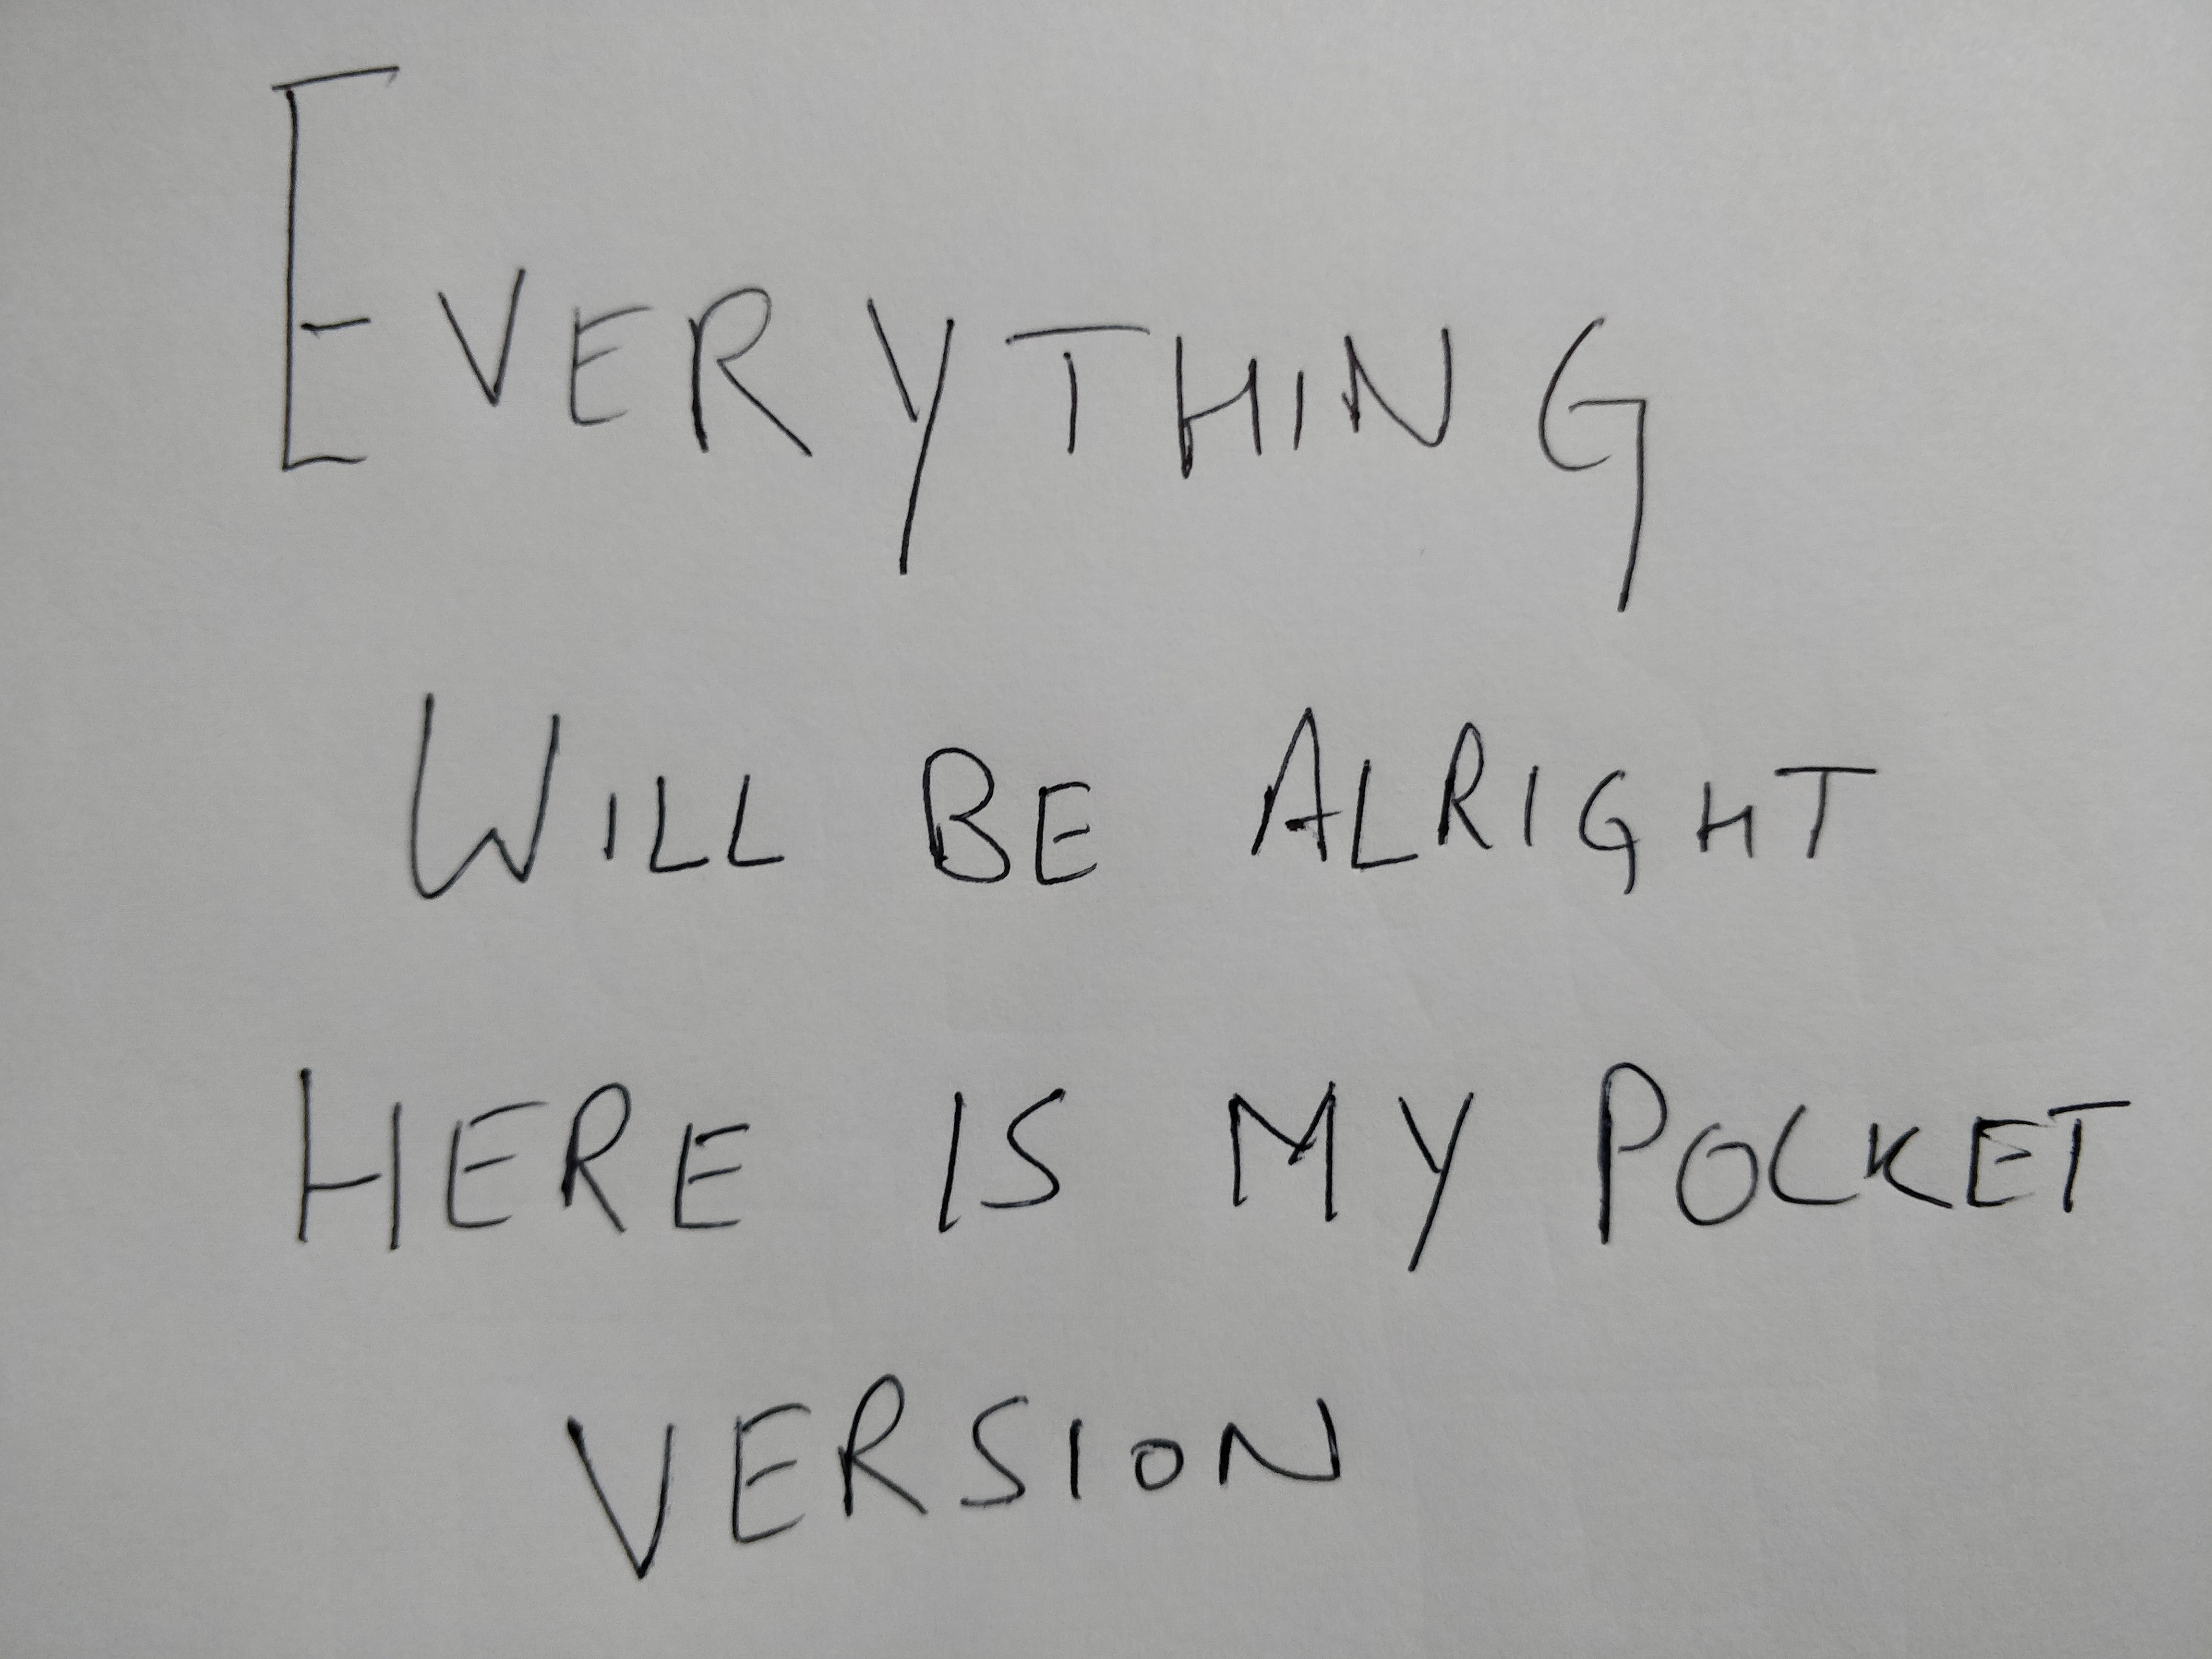 EVERYTHING
WILL BE ALRIGHT
HERE IS MY POCKET
VERSION